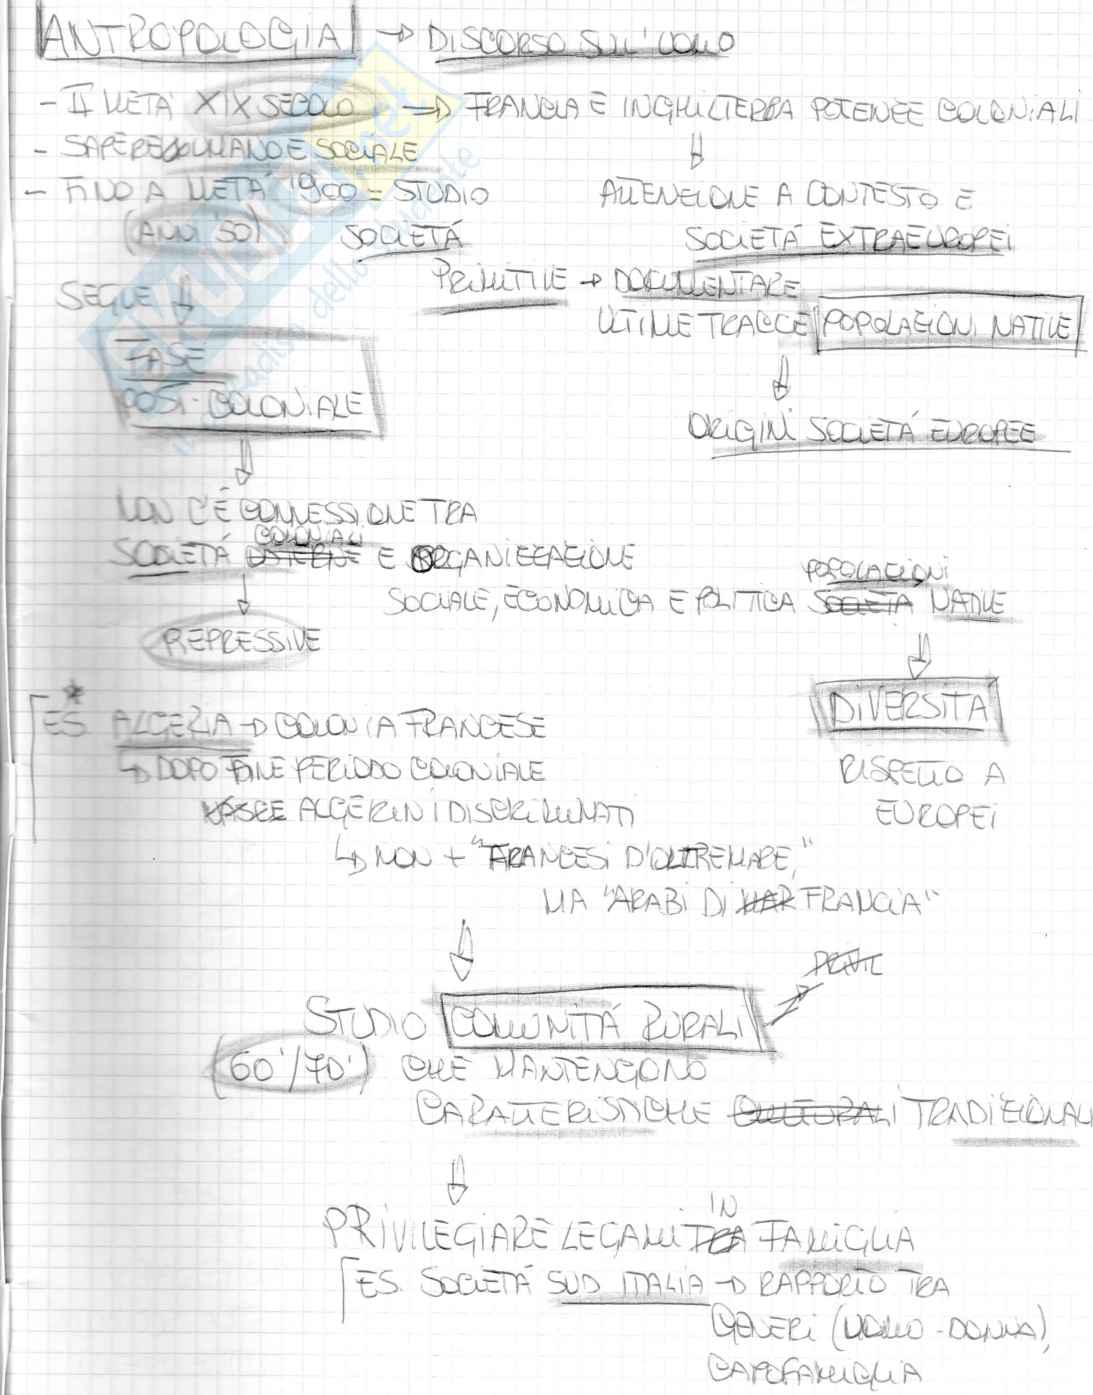 ANTROPOLOGIA → DISCORSO SULL'UOMO
- II METÁ XIX SECOLO → FRANCIA E INGHILTERRA POTENZE COLONIALI
- SAPERE UMANO E SOCIALE
- FINO A METÁ '900 = STUDIO
(ANNI 50) SOCIETÁ
PRIMITIVE
ATTENZIONE A CONTESTO E
SOCIETÁ EXTRAEUROPEI
→ DOCUMENTARE
ULTIME TRACCE POPOLAZIONI NATIVE
ORIGINI SOCIETÁ EUROPEE
SEGUE
FASE
POST-COLONIALE
NON C'É CONNESSIONE TRA
SOCIETÁ COLONIALI E ORGANIZZAZIONE
SOCIALE, ECONOMICA E POLITICA POPOLAZIONI NATIVE
REPRESSIVE
DIVERSITÁ
RISPETTO A
EUROPEI
* ES. ALGERIA → COLONIA FRANCESE
↳ DOPO FINE PERIODO COLONIALE
ALGERINI DISCRIMINATI
↳ NON + "FRANCESI D'OLTREMARE,"
MA "ARABI DI FRANCIA"
STUDIO COMUNITÁ RURALI
(60'/70') CHE MANTENGONO
CARATTERISTICHE TRADIZIONALI
PRIVILEGIARE LEGAMI IN FAMIGLIA
ES. SOCIETÁ SUD ITALIA → RAPPORTO TRA
GENERI (UOMO - DONNA),
CAPOFAMIGLIA